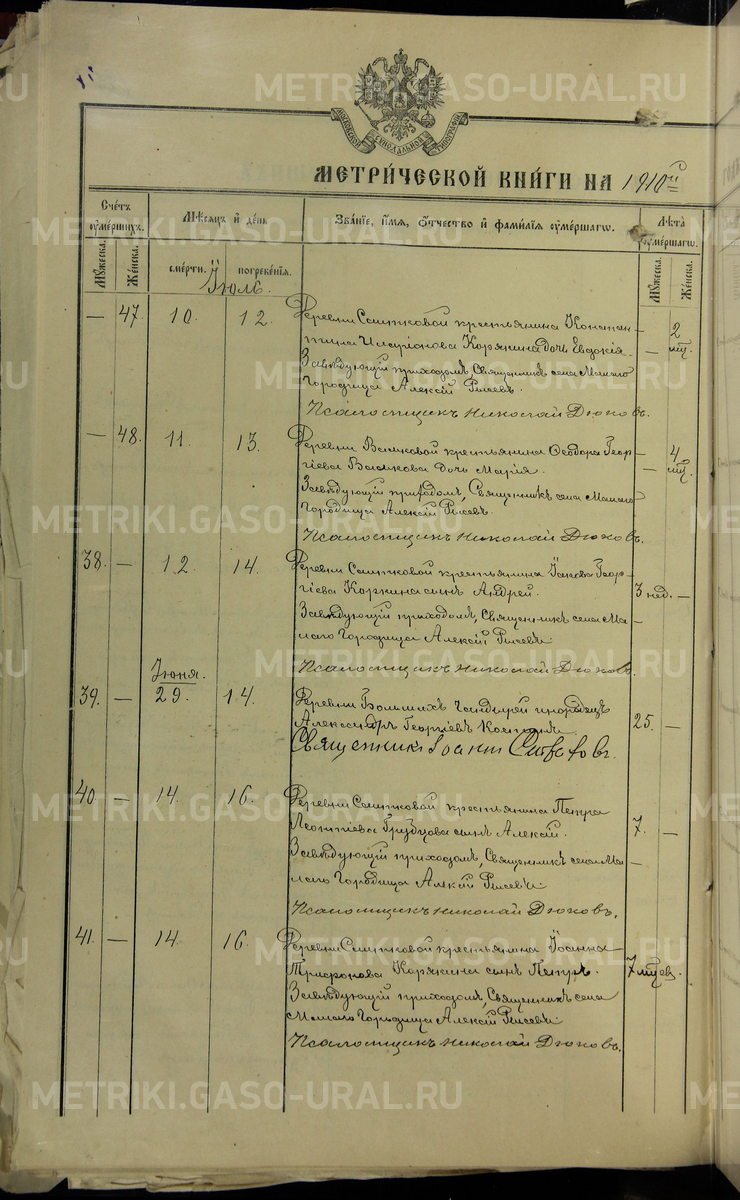 МОСКОВСКОЙ СѴНОДАЛЬНОЙ ТИПОГРАФІИ
МЕТРИ́ЧЕСКОЙ КНИ́ГИ НА 1910й
Сче́тъ ᲂумершихъ.
Мѣсяцъ и день
Зва́нїе, и́мя, ѻ҆́тчество и҆ фами́лїя ᲂу҆ме́ршагѡ.
Лѣта ᲂу҆ме́ршагѡ.
Мꙋжеска. Же́нска.
сме́рти. погребе́нїя.
Мꙋжеска. Же́нска.
Іюль.
— 47. 10. 12. Деревни Саитковой крестьянина Констан- — 2
тина Иларіонова Корякина дочь Евдокія. — мц.
Завѣдующій приходомъ, Священникъ села Малаго
Городища Алексій
Псаломщикъ Николай Дюковъ.
— 48. 11. 13. Деревни Валиковой крестьянина Ѳеодора Геор- 4
гіева Валикова дочь Марія. — мц.
Завѣдующій приходомъ, Священникъ села Малаго
Городища Алексій
Псаломщикъ Николай Дюковъ.
38. — 12. 14. Деревни Саитковой крестьянина Іакова Геор-
гіева Коркина сынъ Андрей. 3 нед. —
Завѣдующій приходомъ, Священникъ села Ма-
лаго Городища Алексій
Псаломщикъ Николай Дюковъ.
Іюня.
39. — 29. 14. Деревни Большихъ инородецъ
Александръ Георгіевъ 25. —
Священникъ Іоаннъ
40. — 14. 16. Деревни Саитковой крестьянина Петра
Леонтіева Грубцова сынъ Алексій. 7. —
Завѣдующій приходомъ, Священникъ села Ма-
лаго Городища Алексій
Псаломщикъ Николай Дюковъ.
41. — 14. 16. Деревни Саитковой крестьянина Іоанна
Трифонова Корякина сынъ Петръ. 7 мцев. —
Завѣдующій приходомъ, Священникъ села
Малаго Городища Алексій
Псаломщикъ Николай Дюковъ.
METRIKI.GASO-URAL.RU